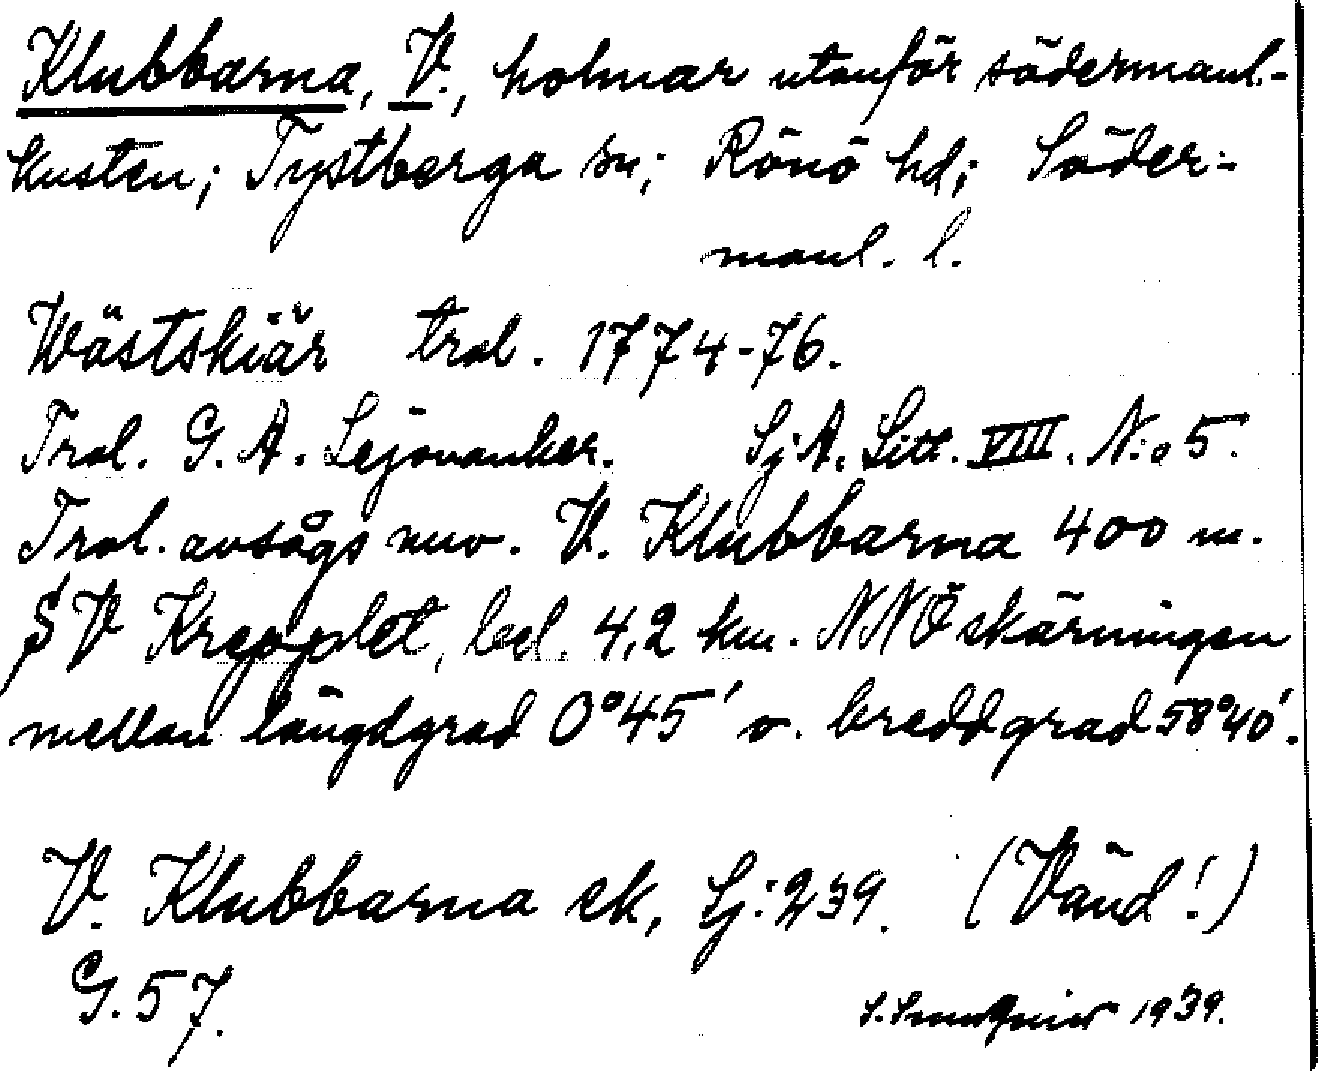 Klubbarna, V., holmar utanför södermanl.-
kusten; Tystberga sn; Rönö hd; Söder-
manl. l.
Wästskiär trol. 1774-76.
Trol. G. A. Lejonanker. SjA. Litt. VIII. N:o 5.
Trol. avsågs nuv. V. Klubbarna 400 m.
SV Krepplet, bel. 4,2 km. NNÖ skärningen
mellan längdgrad 0°45' o. breddgrad 58°40'.
V. Klubbarna ek, Sj:239. (Vänd!)
G. 57.
1939.